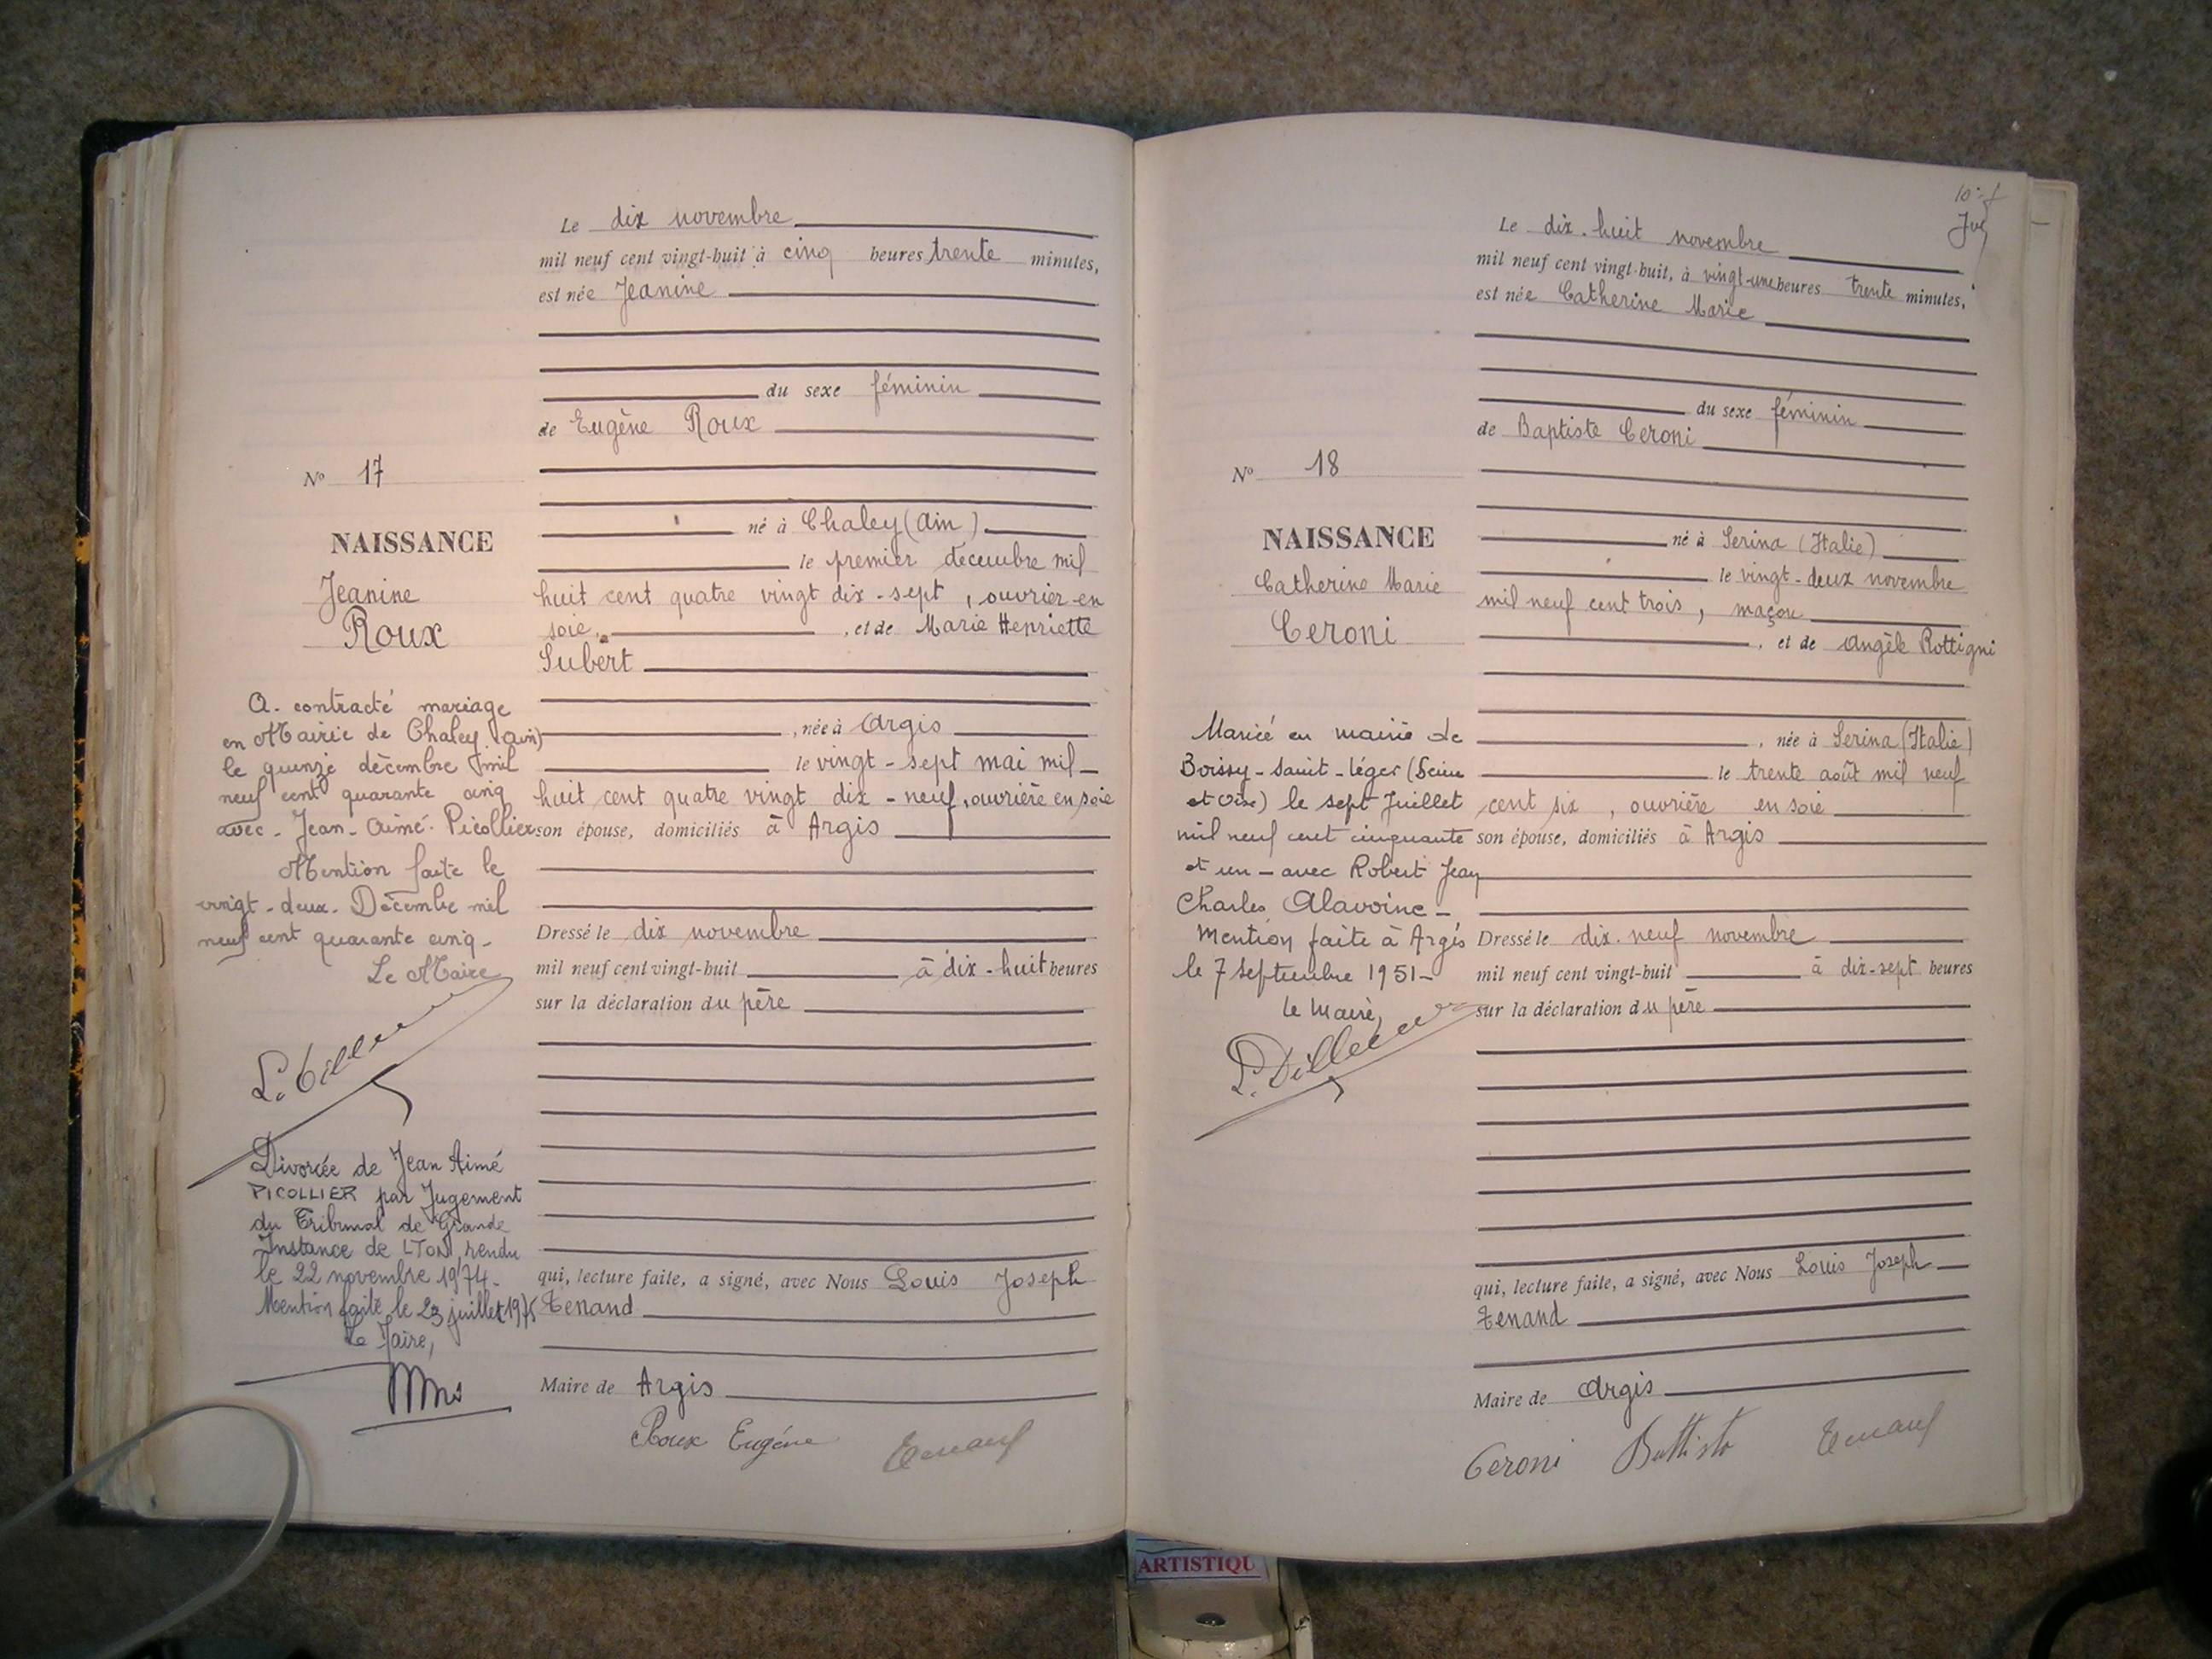 Le dix novembre
mil neuf cent vingt-huit à cinq heures trente minutes,
est née Jeanine
du sexe féminin
de Eugène Roux
N° 17
NAISSANCE
Jeanine
Roux
né à Chaley (Ain)
le premier décembre mil
huit cent quatre vingt dix-sept, ouvrier en
soie, et de Marie Henriette
Subert
née à Argis
le vingt-sept mai mil
huit cent quatre vingt dix-neuf, ouvrière en soie
son épouse, domiciliés à Argis
Dressé le dix novembre
mil neuf cent vingt-huit à dix-huit heures
sur la déclaration du père
qui, lecture faite, a signé, avec Nous Louis Joseph
Tenand
Maire de Argis
Roux Eugène Tenand
A. contracté mariage
en Mairie de Chaley (Ain)
le quinze décembre mil
neuf cent quarante cinq
avec - Jean - Aimé - Picollier
Mention faite le
vingt-deux - Décembre mil
neuf cent quarante cinq -
Le Maire
Divorcée de Jean Aimé
PICOLLIER par Jugement
du Tribunal de Grande
Instance de LYON, rendu
le 22 novembre 1974.
Mention faite le 23 juillet 1975
Le Maire,
Le dix-huit novembre
mil neuf cent vingt-huit, à vingt-une heures trente minutes,
est née Catherine Marie
du sexe féminin
de Baptiste Ceroni
N° 18
NAISSANCE
Catherine Marie
Ceroni
né à Serina (Italie)
le vingt-deux novembre
mil neuf cent trois, maçon
, et de Angèle Rottigni
, née à Serina (Italie)
le trente août mil neuf
cent six, ouvrière en soie
son épouse, domiciliés à Argis
Dressé le dix-neuf novembre
mil neuf cent vingt-huit à dix-sept heures
sur la déclaration du père
qui, lecture faite, a signé, avec Nous Louis Joseph
Tenand
Maire de Argis
Ceroni Battista Tenand
Mariée en mairie de
Boissy-Saint-Léger (Seine
et Oise) le sept Juillet
mil neuf cent cinquante
et un - avec Robert Jean
Charles Alavoine -
Mention faite à Argis
le 7 Septembre 1951 -
Le Maire,
ARTISTIQU